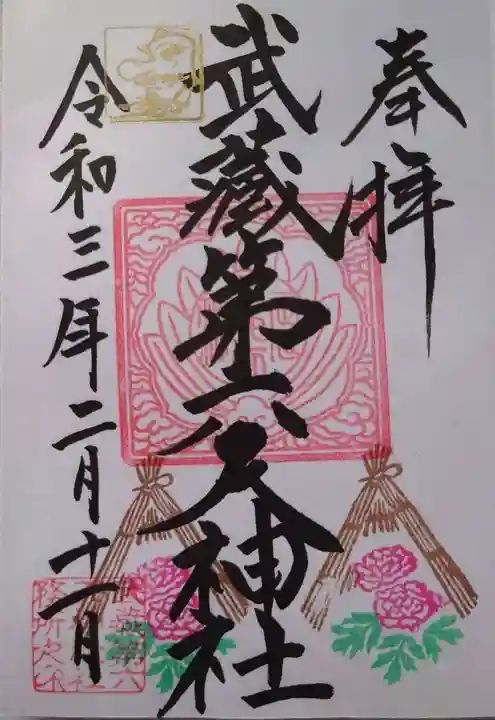 奉拝
武蔵第六天神社
令和三年二月十一日